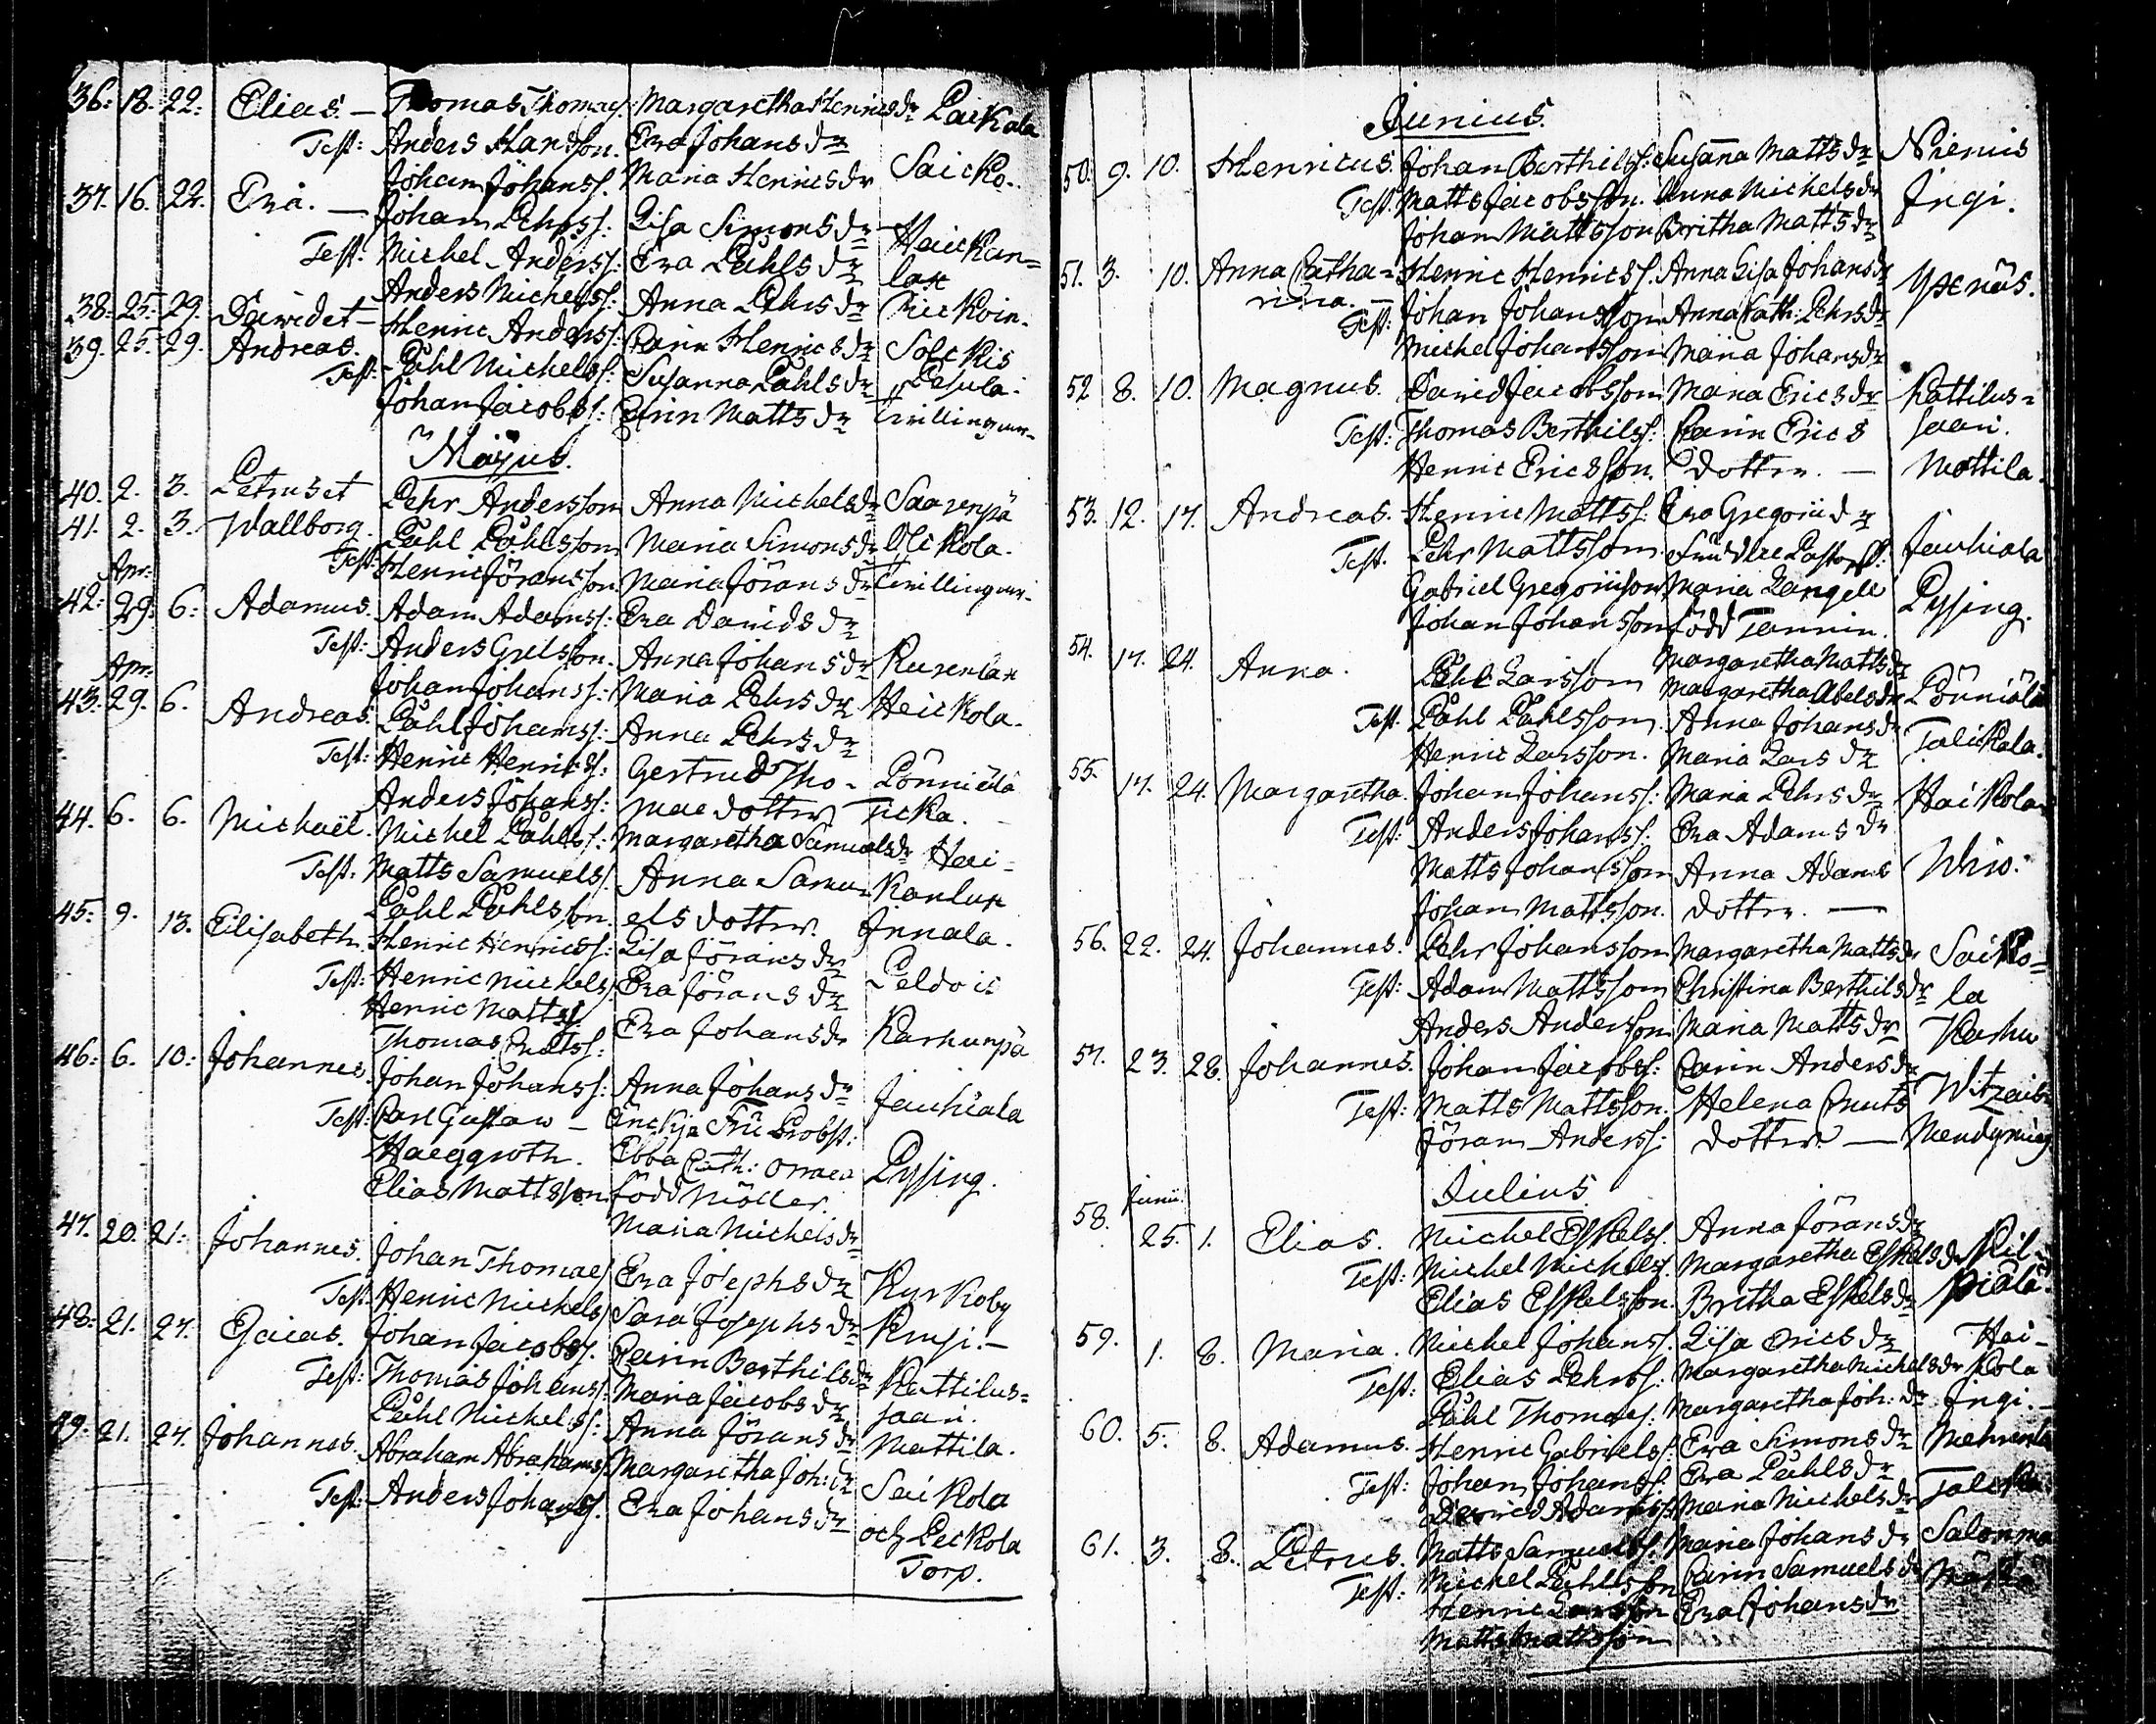 36. 18. 22. Elias. — Thomas Thomaes. Margaretha Henricsdr Paikala
Test: Anders Hansson. Eva Johansdr
Johan Johanss. Maria Henricsdr Saicko.
37. 16. 22. Eva. — Johan Pehrss: Lisa Simonsdr Haickan=
Test: Michel Anderss: Eva Påhlsdr lax
Anders Michelss: Anna Pehrsdr
38. 25. 29. Davidet — Henric Anderss: Carin Henricsdr
39. 25. 29. Andreas.
Test: Påhl Michelss: Susanna Påhlsdr Pesula.
Johan Jacobss: Carin Mattsdr Tvillingar.
Majus.
40. 2. 3. Petruset Pehr Andersson Anna Michelsdr Saarenpä
41. 2. 3. Wallborg. Påhl Påhlsson Maria Simonsdr Olikola.
Test: Henric Jöransson Maria Jöransdr Tvillingar.
Apr:
42. 29. 6. Adamus. Adam Adamss: Eva Davidsdr
Test: Anders Grelsson. Anna Johansdr Kurenlax
Johan Johanss: Maria Pehrsdr Heickola.
Apr:
43. 29. 6. Andreas. Påhl Johanss: Anna Pehrsdr
Test: Henric Henricss: Gertrud Tho- Pönniälä
Anders Johanss: mae dotter Ticka.
44. 6. 6. Michaël. Michel Påhlss: Margaretha Samuelsdr Hai=
Test: Matts Samuels. Anna Samu- kanlax
Påhl Påhlsson. els dotter. Innala.
45. 9. 13. Elisabeth. Henric Henricss: Lisa Jöransdr
Test: Henric Michels. Eva Jöransdr Peldois
Henric Mattss
Thomas Eva Johansdr Karhunpä
46. 6. 10. Johannes. Johan Johanss: Anna Johansdr Jauhiala
Test: Carl Gustaw — Änckje Fru Probst:
Haeggroth. Ebba Cath: Orraea Pysing.
Elias Mattsson född Möller.
Maria Michelsdr
47. 20. 21. Johannes. Johan Thomaes Eva Josephsdr Kyrkoby
Test: Henric Michels Sara Josephsdr
48. 21. 27. Esaias. Johan Jacobss. Carin Berthilsdr Kattilus=
Test: Thomas Johanss: Maria Jacobsdr saari.
Påhl Michelss: Anna Jöransdr Mattila.
49. 21. 27. Johannes. Abraham Abrahams. Margaretha Joh: dr Saikola
Test: Anders Johans. Eva Johansdr och Peckola
Torp.
Junius.
50. 9. 10. Henricus. Johan Berthilss: Susanna Mattsdr Niemis
Test. Matts Jacobsson. Anna Michelsdr Ingi.
Johan Mattsson Britha Mattsdr
51. 3. 10. Anna Catha= Henric Henricss. Anna Lisa Johansdr Yxenäs.
rina. —
Test: Johan Johansson Anna Cath: Pehrsdr
Michel Johansson Maria Johansdr
52. 8. 10. Magnus. David Jacobsson Maria Ericsdr Kattilus=
Test: Thomas Berthilss: Carin Erics saari.
Henric Ericsson. dotter. — Mattila.
53. 12. 17. Andreas. Henric Mattss: Eva Gregoriidr
Test. Pehr Mattsson. Fru Vice Pastorsk: Jauhiala
Gabriel Gregoriisson Maria Zangell Pysing.
Johan Johansson född Tannin.
54. 17. 24. Anna. Påhl Larsson Margaretha Mattsdr
Margaretha Abelsdr Pönniälä
Test. Påhl Påhlsson. Anna Johansdr Talikala.
Henric Larsson. Maria Larsdr
55. 17. 24. Margaretha. Johan Johanss: Maria Pehrsdr Haikola
Test: Anders Johanss: Eva Adamsdr
Matts Johansson Anna Adams
Johan Mattsson. dotter. —
56. 22. 24. Johannes. Pehr Johansson Margaretha Mattsdr Saiko=
Test: Adam Mattsson Christina Berthilsdr la
Anders Andersson Maria Mattsdr Karhu
57. 23. 28. Johannes. Johan Jacobss: Carin Andersdr
Test: Matts Mattsson. Helena Cnuts
Jöran Anderss: dotter —
Julius
Junii
58. 25. 1. Elias. Michel Eskelss. Anna Jöransdr
Test: Michel Michelss. Margaretha Eskelsdr Kil=
Elias Eskelsson. Britha Eskelsdr piälä.
59. 1. 8. Maria. Michel Johanss. Lisa Ericsdr Hai-
Test: Elias Pehrss: Margaretha Michelsdr kola
Påhl Thomaes: Margaretha Joh: dr Ingi.
60. 5. 8. Adamus. Henric Gabrielss: Eva Simonsdr
Test: Johan Johanss. Eva Påhlsdr
David Adamss: Maria Michelsdr
61. 3. 8. Petrus. Matts Samuelss. Maria Johansdr
Test: Michel Påhlsson Carin Samuelsdr
Henric Larsson Eva Johansdr
Matts Mattsson